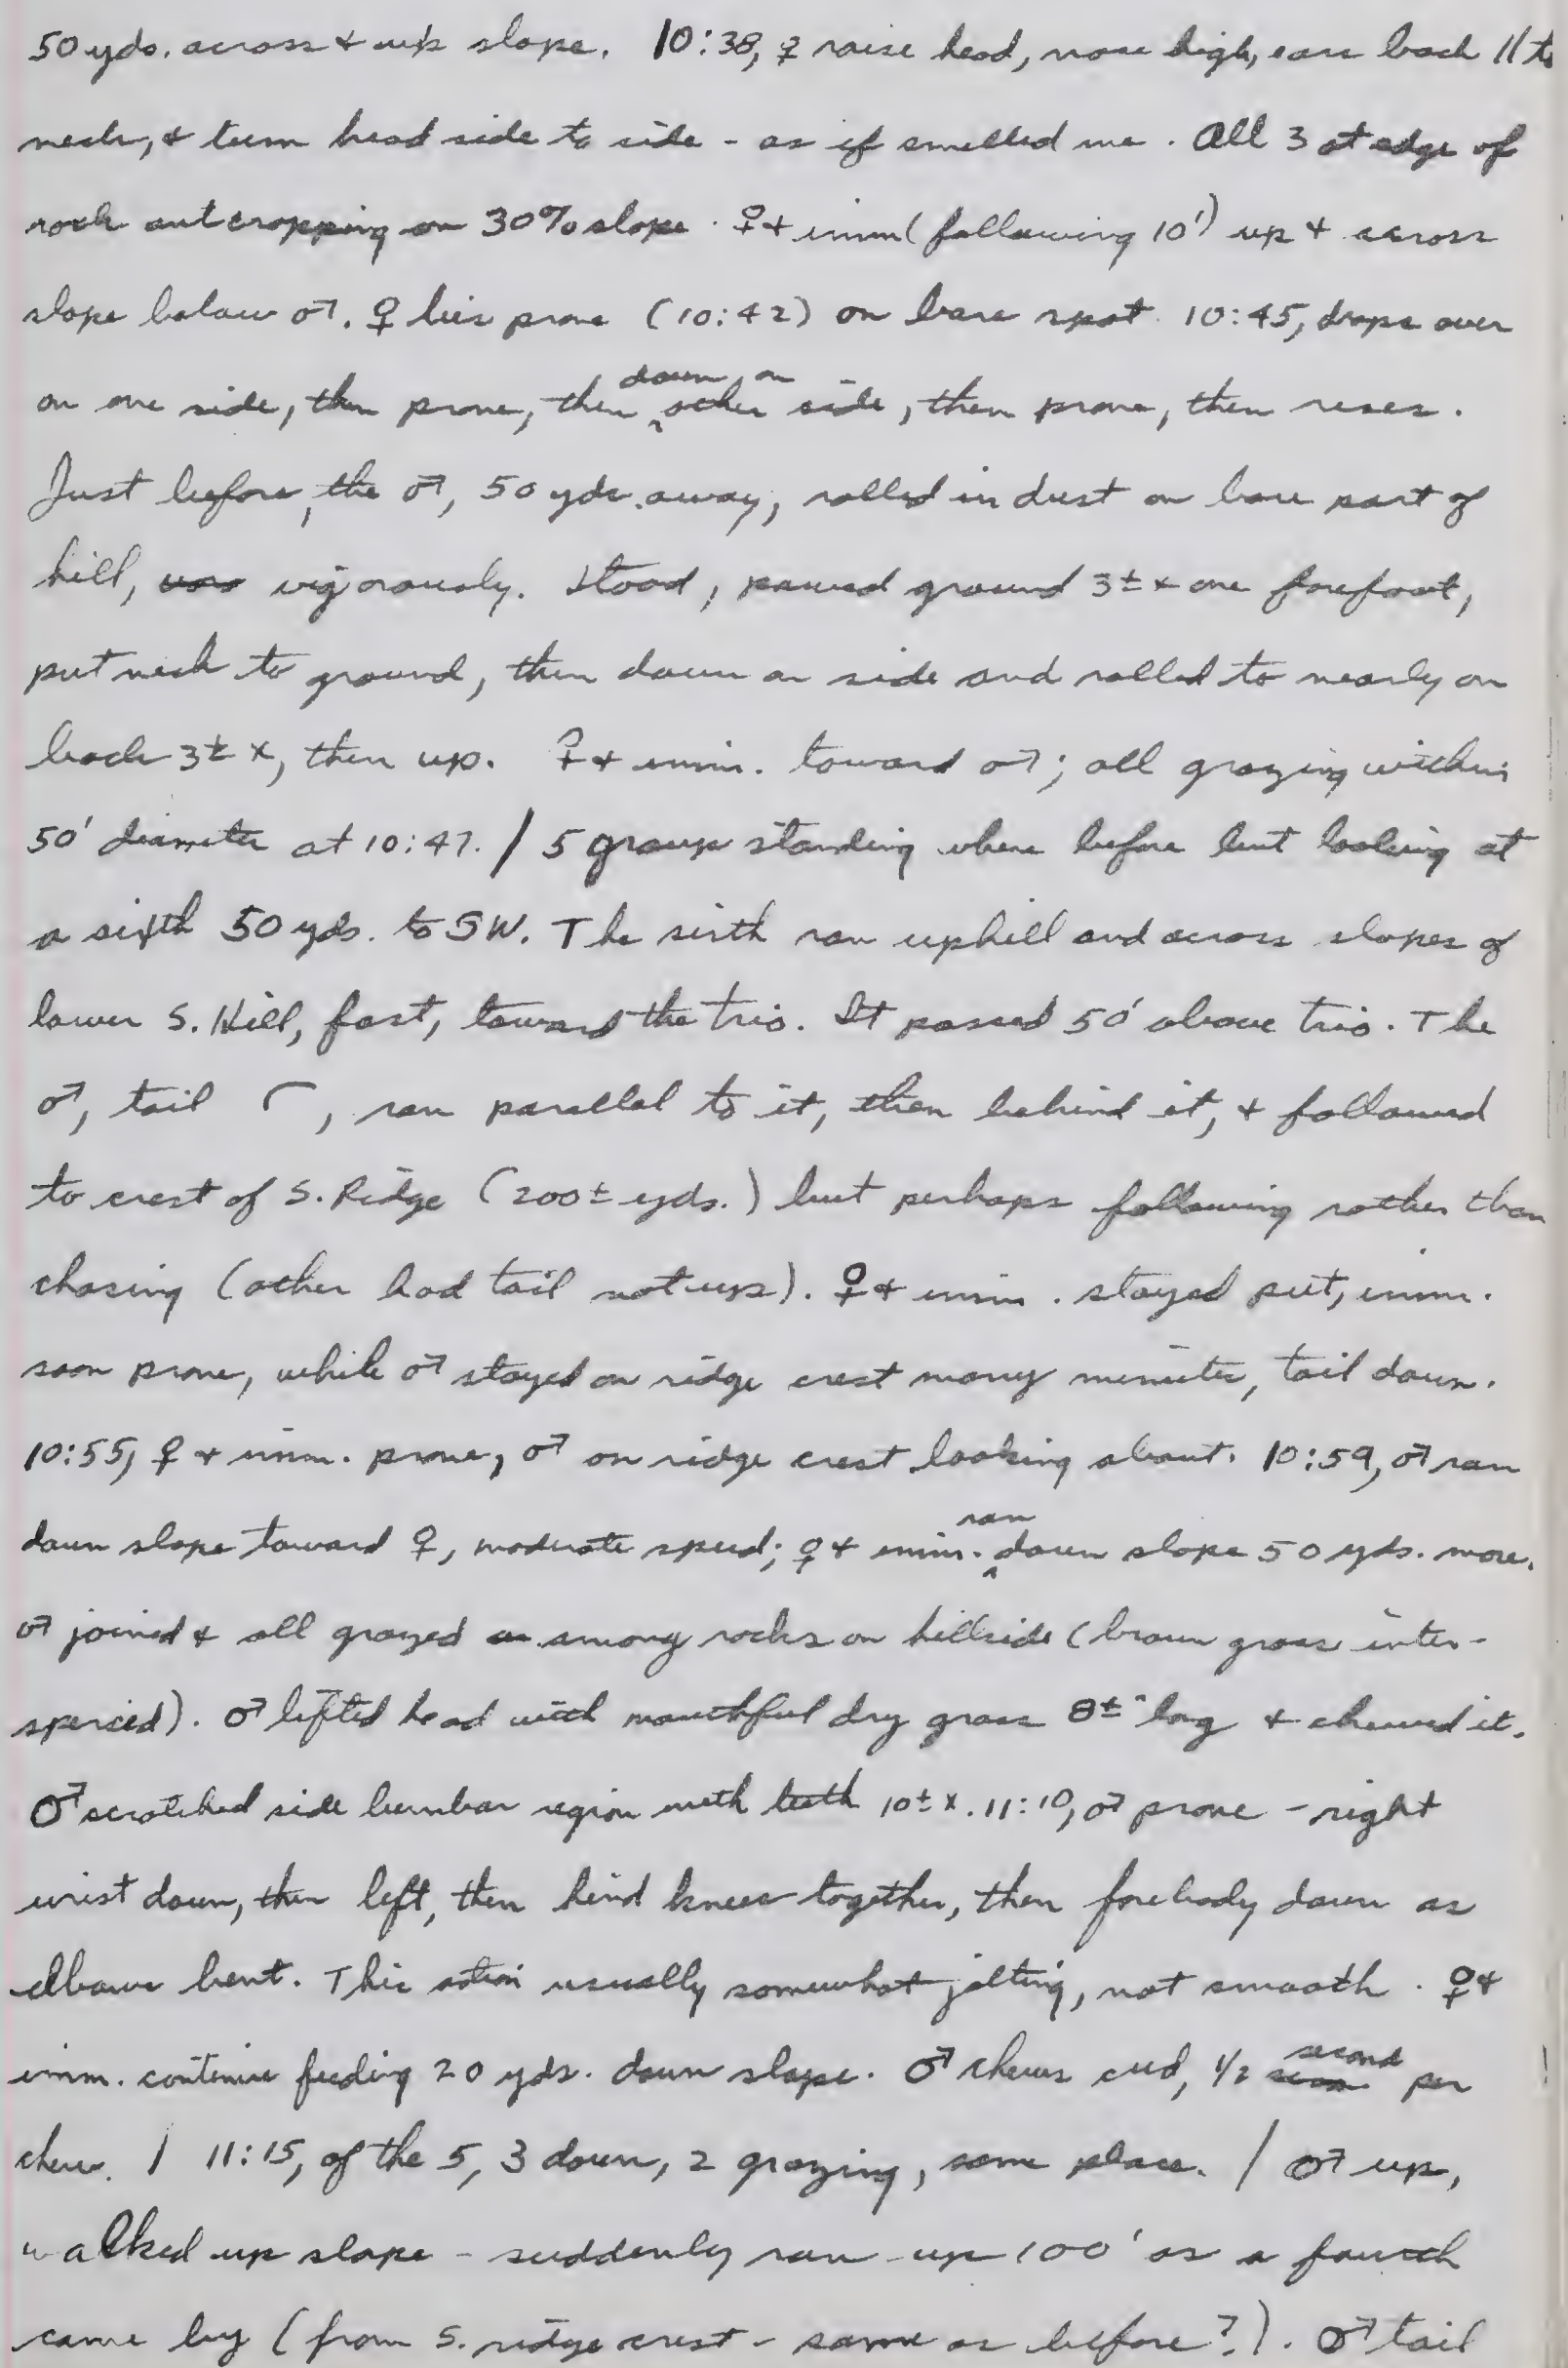 50 yds. across & up slope. 10:38, ♀ raise head, nose high, ears back // to
neck, & turn head side to side - as if smelled me. All 3 at edge of
rock outcropping on 30% slope. ♀ & imm (following 10') up & across
slope below ♂. ♀ lies prone (10:42) on bare spot. 10:45, drops over
on one side, then prone, then down on other side, then prone, then rises.
Just before, the ♂, 50 yds. away, rolled in dust on bare part of
hill, vigorously. Stood, pawed ground 3± x one forefoot,
put neck to ground, then down on side and rolled to nearly on
back 3± x, then up. ♀ & imm. toward ♂; all grazing within
50' diameter at 10:47. / 5 group standing where before but looking at
a sixth 50 yds. to SW. The sixth ran uphill and across slopes of
lower S. Hill, fast, toward the trio. It passed 50' above trio. The
♂, tail ⌒, ran parallel to it, then behind it, & followed
to crest of S. Ridge (200± yds.) but perhaps following rather than
chasing (other had tail not up). ♀ & imm. stayed put, imm.
soon prone, while ♂ stayed on ridge crest many minutes, tail down.
10:55, ♀ & imm. prone, ♂ on ridge crest looking about. 10:59, ♂ ran
down slope toward ♀, moderate speed; ♀ & imm. ran down slope 50 yds. more.
♂ joined & all grazed among rocks on hillside (brown grass inter-
spersed). ♂ lifted head with mouthful dry grass 8±" long & chewed it.
♂ scratched side lumbar region with teeth 10± x. 11:10, ♂ prone - right
wrist down, then left, then hind knees together, then forebody down as
elbows bent. This action usually somewhat jolting, not smooth. ♀ &
imm. continue feeding 20 yds. down slope. ♂ chews cud, 1/2 second per
chew. / 11:15, of the 5, 3 down, 2 grazing, same place. / ♂ up,
walked up slope - suddenly ran up 100' as a fourth
came by (from S. ridge crest - same as before?). ♂ tail